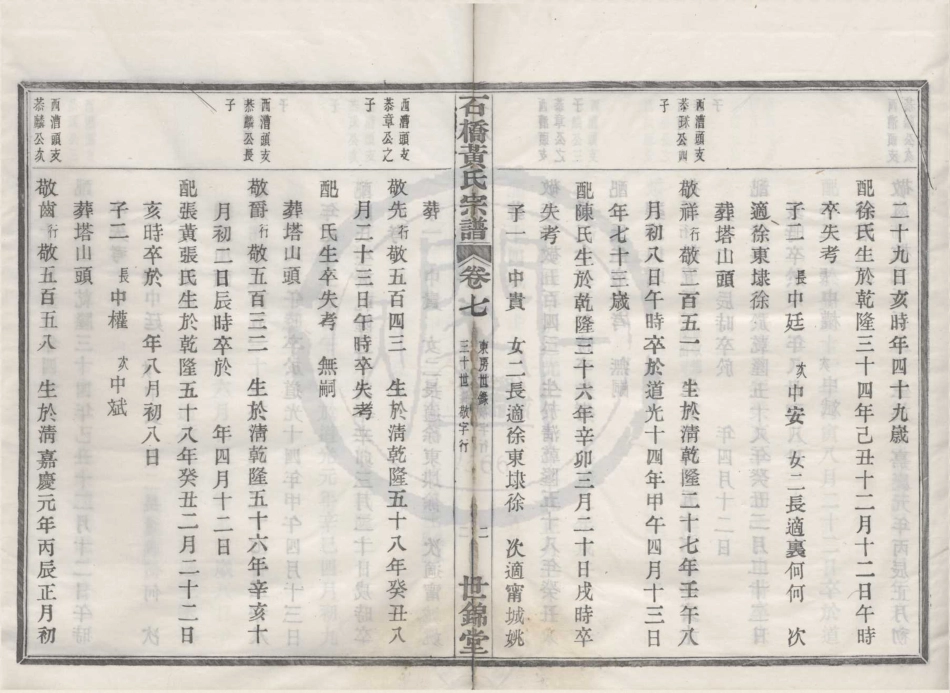 二十九日亥時年四十九歲
配徐氏生於乾隆三十四年己丑十二月十二日午時
卒失考
子二 長中廷 次中安 女二長適裏何何 次
適徐東埭徐
葬塔山頭
西漕頭支
恭球公四
子
敬祥行敬二百五一 生於清乾隆二十七年壬午八
月初八日午時卒於道光十四年甲午四月十三日
年七十三歲
配陳氏生於乾隆三十六年辛卯三月二十日戌時卒
失考
子一 中貴 女二長適徐東埭徐 次適甯城姚
石橋黃氏宗譜 卷七
東房世錄
三十世 敬字行
二
世錦堂
葬
西漕頭支
恭章公之
子
敬先行敬五百四三 生於清乾隆五十八年癸丑八
月二十三日午時卒失考
配 氏生卒失考 無嗣
葬塔山頭
西漕頭支
恭麟公長
子
敬爵行敬五百三二 生於清乾隆五十六年辛亥十
月初二日辰時卒於 年四月十二日
配張黃張氏生於乾隆五十八年癸丑二月二十二日
亥時卒於 年八月初八日
子二 長中權 次中斌
葬塔山頭
西漕頭支
恭麟公次
敬齒行敬五百五八 生於清嘉慶元年丙辰正月初